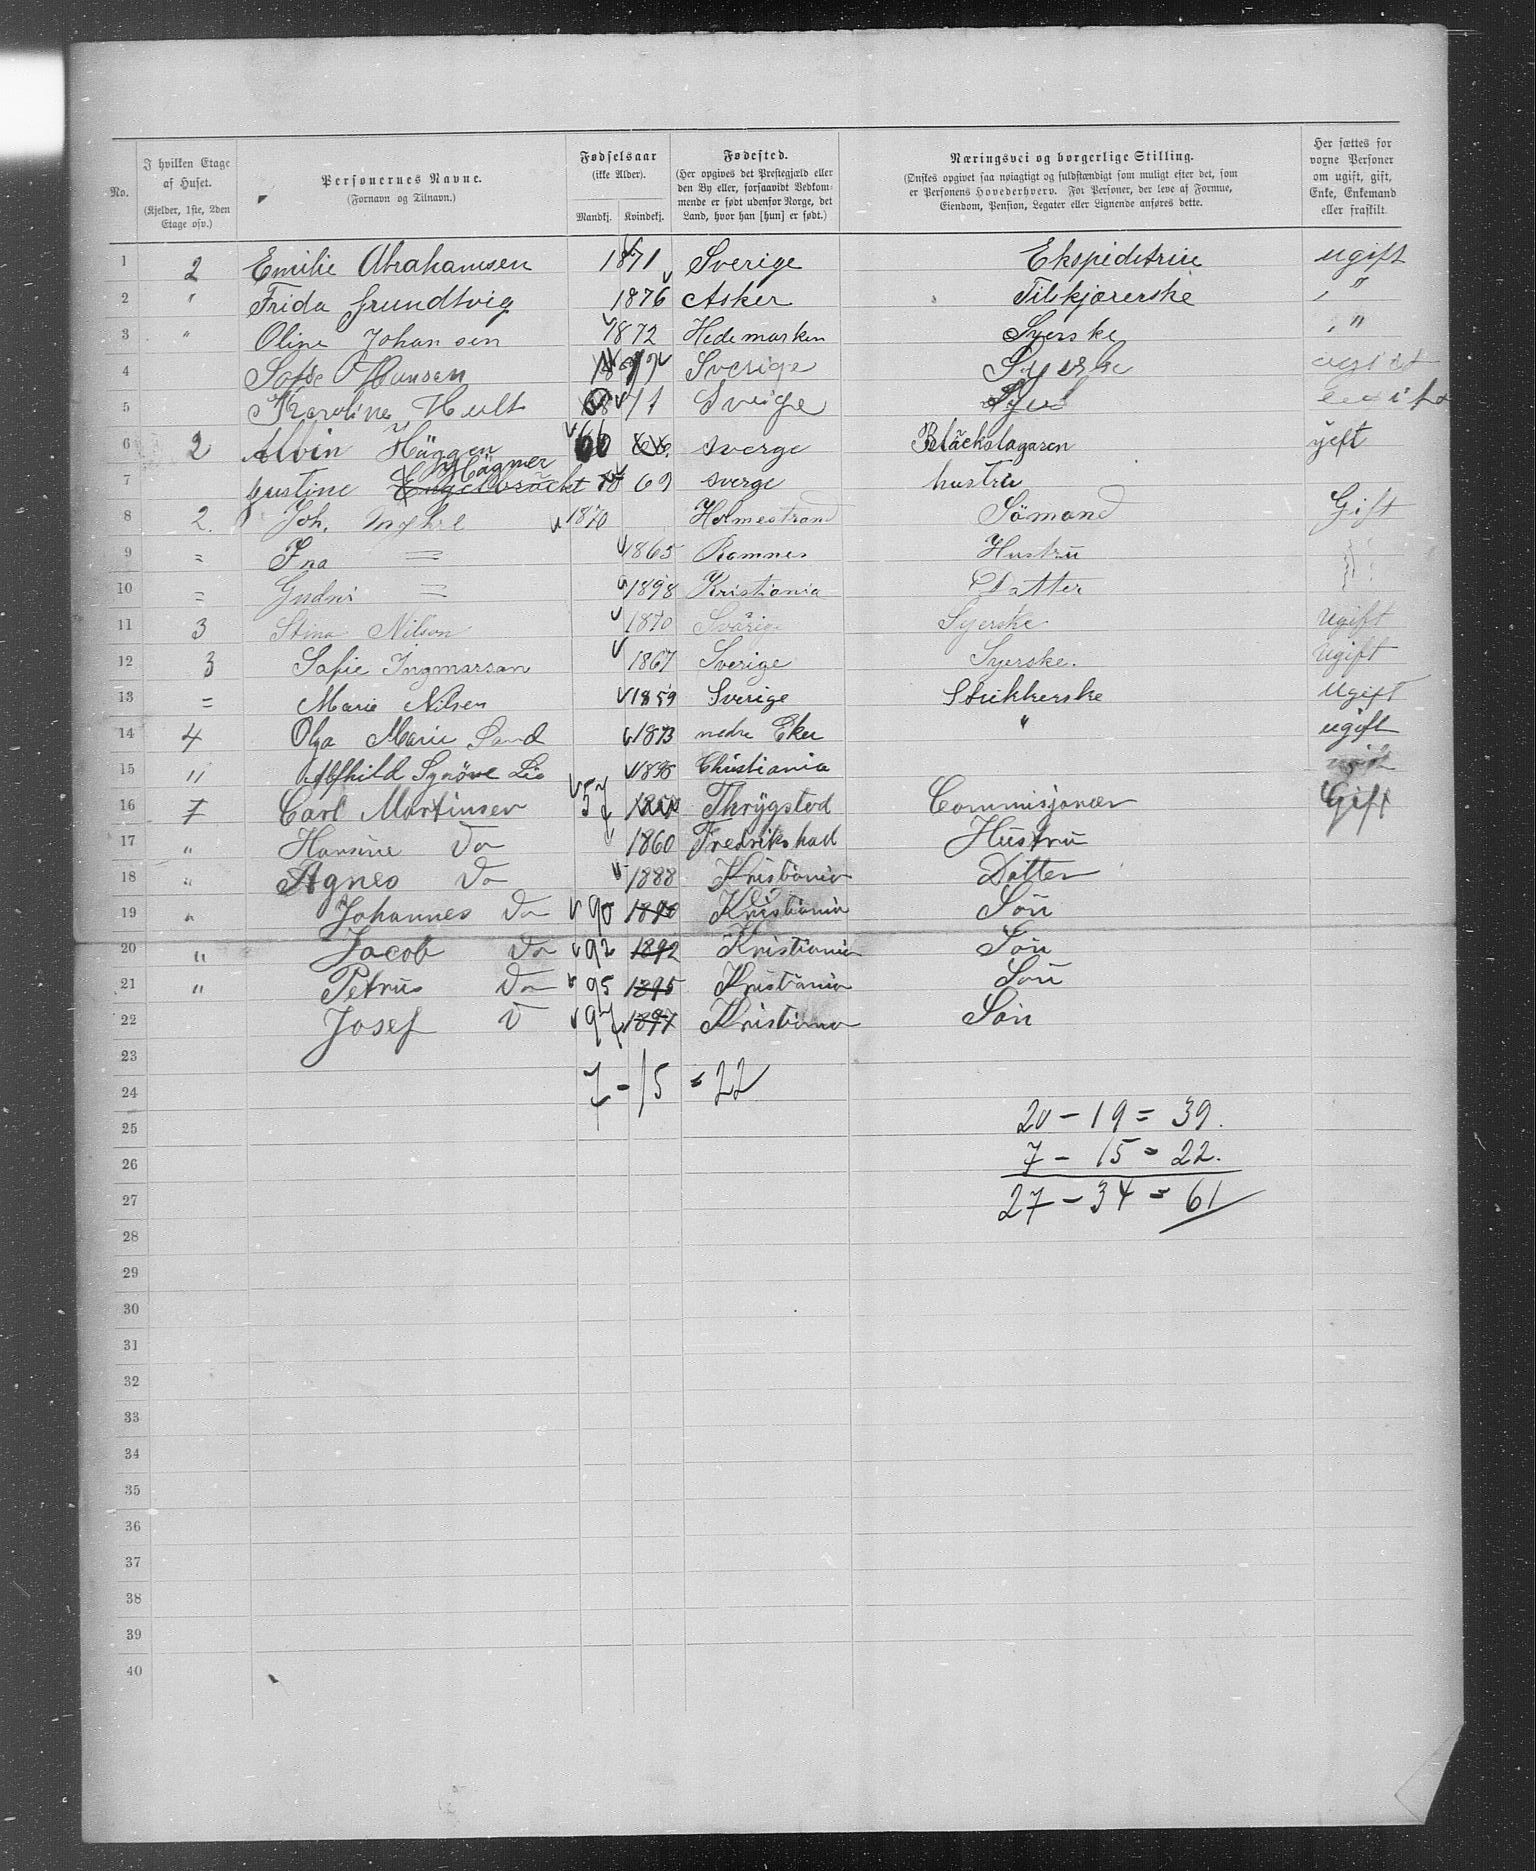 No. | I hvilken Etage af Huset. (Kjelder, 1ste, 2den Etage osv.) | Personernes Navne. (Fornavn og Tilnavn.) | Fødselsaar (ikke Alder). Mandkj. Kvindekj. | Fødested. (Her opgives det Prestegjæld eller den By eller, forsaavidt Vedkommende er født udenfor Norge, det Land, hvor han [hun] er født.) | Næringsvei og borgerlige Stilling. (Ønskes opgivet saa nøiagtigt og fuldstændigt som muligt efter det, som er Personens Hovederhverv. For Personer, der leve af Formue, Eiendom, Pension, Legater eller Lignende anføres dette. | Her sættes for vorne Personer om ugift, gift, Enke, Enkemand eller fraskilt.
1 2 Emilie Abrahamsen 1871 Sverige Ekspiditrise ugift
2 " Frida Grundtvig 1876 Asker Tilskjærerske "
3 " Oline Johansen 1872 Hedemarken Syerske "
4 Sofie Hansen Sverige Syerske
5 Karoline Hult 71 Sverige
6 2 Albin Häggen 66 sverge Bläckslagaren gift
7 Justine Engelbräckt Hägner 69 sverge hustru
8 2. Joh. Myhre 1870 Holmestrand Sömand Gift
9 = Ina = 1865 Ramnes Hustru
10 = Gudni = 1898 Kristiania Datter
11 3 Stina Nilson 1870 Svärige Syerske Ugift
12 3 Sofie Ingmarsan 1867 Sverige Syerske. Ugift
13 = Marie Nilsen 1859 Sverige Strikkerske Ugift
14 4 Olga Marie Sand 1873 nedre Eker " ugift
15 " Alfhild Synöve Lie 1898 Christiania
16 7 Carl Martinsen 57 Thrygstad Commisjonær Gift
17 " Hansine Do 1860 Fredrikshad Hustru
18 " Agnes Do 1888 Kristiania Datter
19 " Johannes Do 90 1890 Kristiania Sön
20 " Jacob Do 92 1892 Kristiania Sön
21 " Petrus Do 95 1895 Kristiania Sön
22 Josef D 97 1897 Kristiania Sön
23
7 - 15 = 22
24
20 - 19 = 39.
25
7 - 15 = 22.
26
27 - 34 = 61
27
28
29
30
31
32
33
34
35
36
37
38
39
40